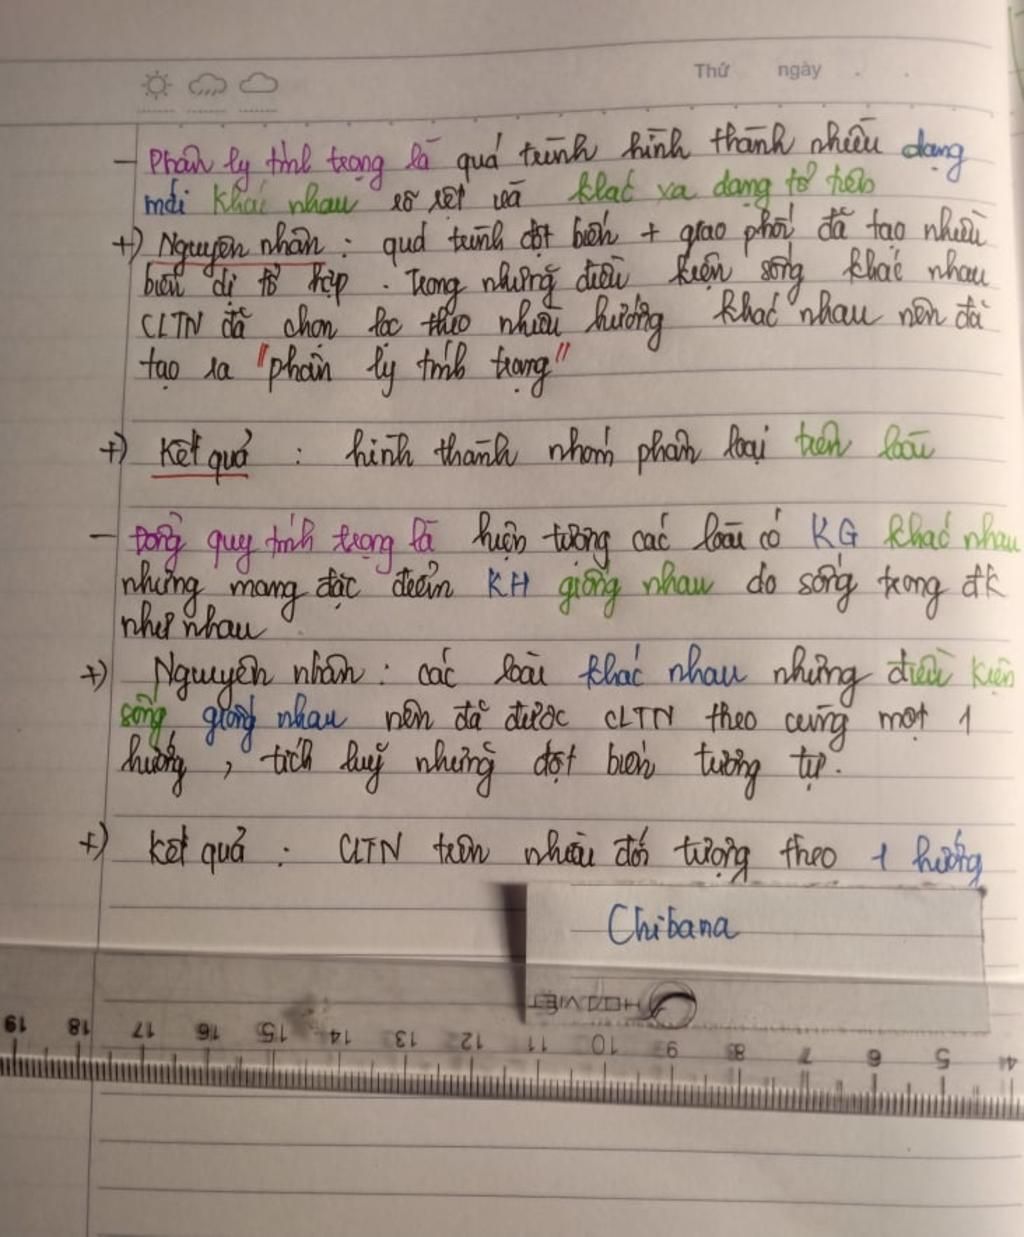 Thứ ngày
- Phân ly tính trạng là quá trình hình thành nhiều dạng
mới khác nhau rõ rệt và khác xa dạng tổ tiên
+) Nguyên nhân : quá trình đột biến + giao phối đã tạo nhiều
biến dị tổ hợp . Trong những điều kiện sống khác nhau
CLTN đã chọn lọc theo nhiều hướng khác nhau nên đã
tạo ra "phân ly tính trạng"
+) Kết quả : hình thành nhóm phân loại trên loài
- Đồng quy tính trạng là hiện tượng các loài có KG khác nhau
nhưng mang đặc điểm KH giống nhau do sống trong đk
như nhau
+) Nguyên nhân : các loài khác nhau nhưng điều kiện
sống giống nhau nên đã được CLTN theo cùng một 1
hướng , tích luỹ những đột biến tương tự.
+) Kết quả : CLTN trên nhiều đối tượng theo 1 hướng
Chibana
4 5 6 7 8 9 10 11 12 13 14 15 16 17 18 19